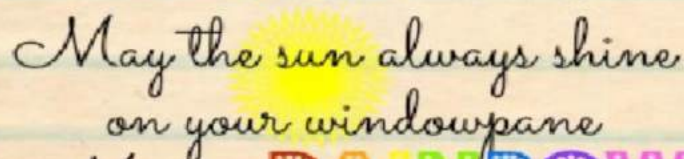 May the sun always shine
on your windowpane